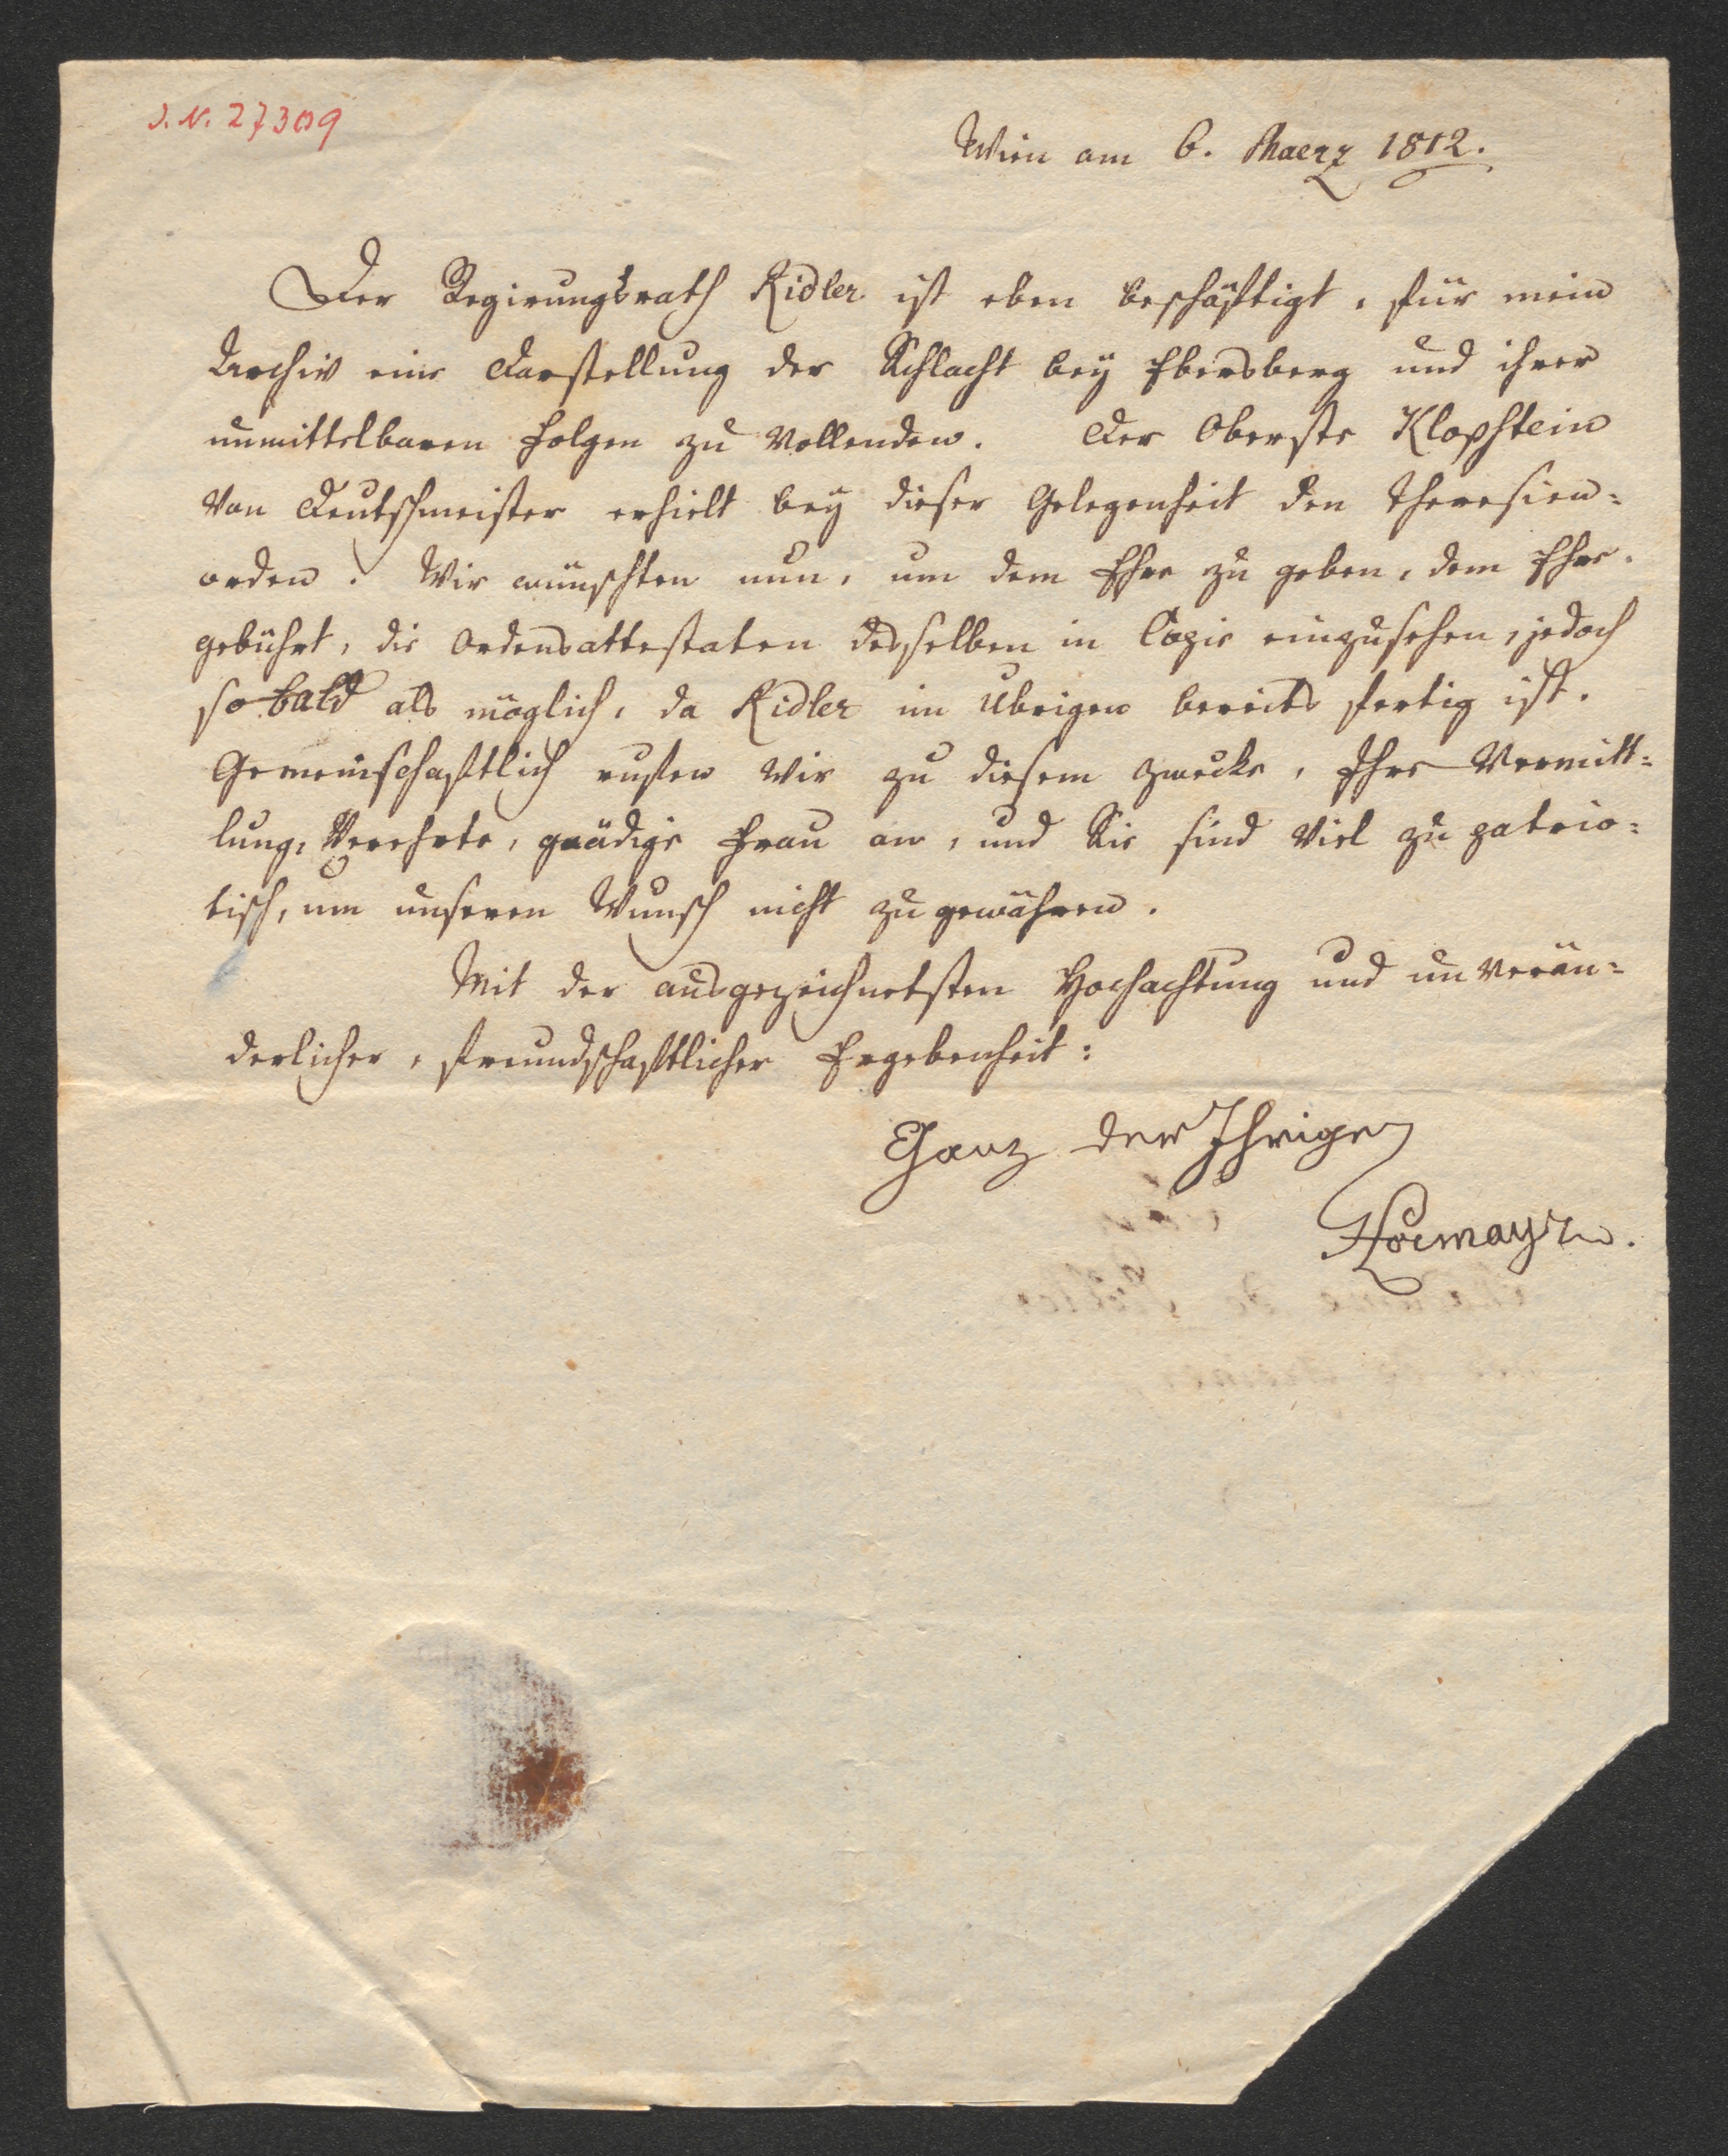 J. N. 27309
Wien am 6. Maerz 1812.
Der Regierungsrath Ridler ist eben beschäftigt, für mein
Archiv eine Darstellung der Schlacht bey Ebersberg und ihrer
unmittelbaren Folgen zu vollenden. Der Oberste Klopstein
von Deutschmeister erhielt bey dieser Gelegenheit den Theresien=
orden. Wir wünschten nun, um dem Ehre zu geben, dem Ehre
gebührt, die Ordensattestaten desselben in Copie einzusehen, jedoch
so bald als möglich, da Ridler im Übrigen bereits fertig ist.
Gemeinschaftlich rufen wir zu diesem Zwecke, Ihre Vermitt=
lung, Verehrte, gnädige Frau an, und Sie sind viel zu patrio=
tisch, um unseren Wunsch nicht zu gewähren.
Mit der ausgezeichnetsten Hochachtung und unverän=
derlicher, freundschaftlicher Ergebenheit:
Ganz der Ihrige
Hormayr